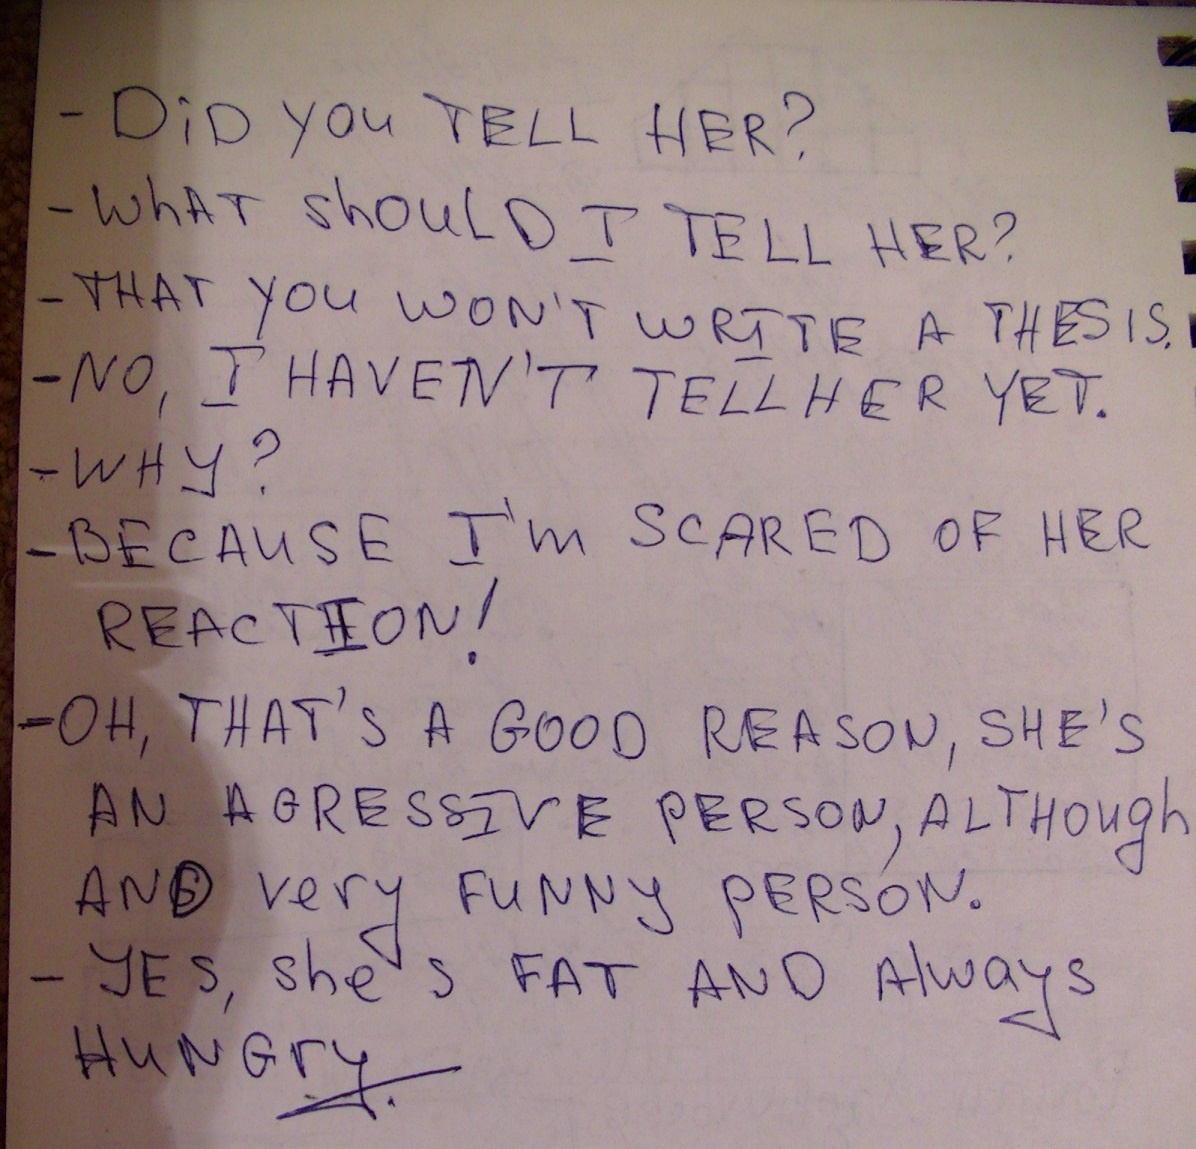 - DiD you TELL HER?
- WhAT shOULD I TELL HER?
- THAT you WON'T WRITE A THESIS.
- NO, I HAVEN'T TELL HER YET.
- WHY?
- BECAUSE I'm SCARED OF HER
REACTION!
- OH, THAT'S A GOOD REASON, SHE'S
AN AGRESSIVE PERSON, ALTHOugh
AND very FUNNY PERSON.
- YES, she's FAT AND Always
HUNGry.